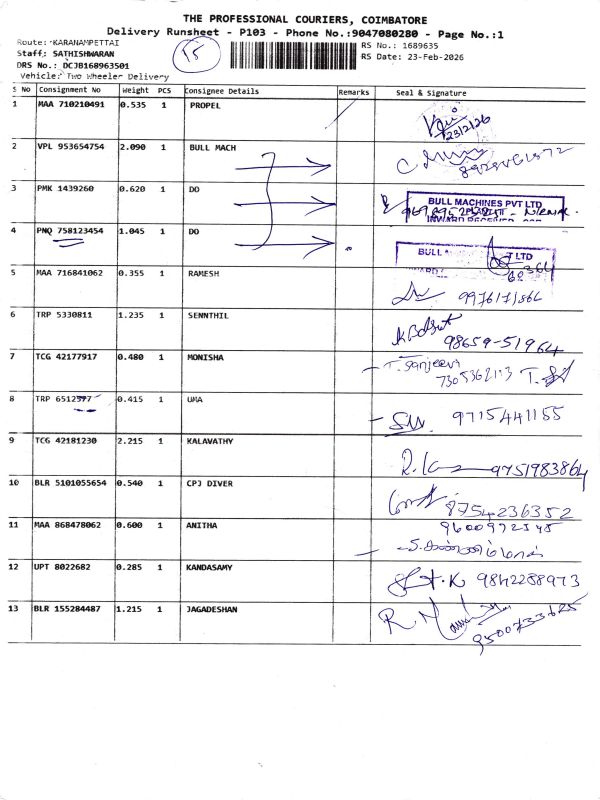 THE PROFESSIONAL COURIERS, COIMBATORE
Delivery Runsheet - P103 - Phone No.:9047080280 - Page No.:1
Route: KARANAMPETTAI
Staff: SATHISHWARAN
DRS No.: DCJB168963501
Vehicle: Two Wheeler Delivery
15
RS No.: 1689635
RS Date: 23-Feb-2026
S No Consignment No Weight PCS Consignee Details Remarks Seal & Signature
1 MAA 710210491 0.535 1 PROPEL 23/2/26
2 VPL 953654754 2.090 1 BULL MACH
3 PMK 1439260 0.620 1 DO BULL MACHINES PVT LTD
4 PNQ 758123454 1.045 1 DO BULL LTD
5 MAA 716841062 0.355 1 RAMESH
6 TRP 5330811 1.235 1 SENNTHIL 98659-51964
7 TCG 42177917 0.480 1 MONISHA T. Sanjeevi
7305362113
8 TRP 6512577 0.415 1 UMA 9715441155
9 TCG 42181230 2.215 1 KALAVATHY 9751983864
10 BLR 5101055654 0.540 1 CPJ DIVER 8754236352
11 MAA 868478062 0.600 1 ANITHA
12 UPT 8022682 0.285 1 KANDASAMY 9842288973
13 BLR 155284487 1.215 1 JAGADESHAN 9500733625